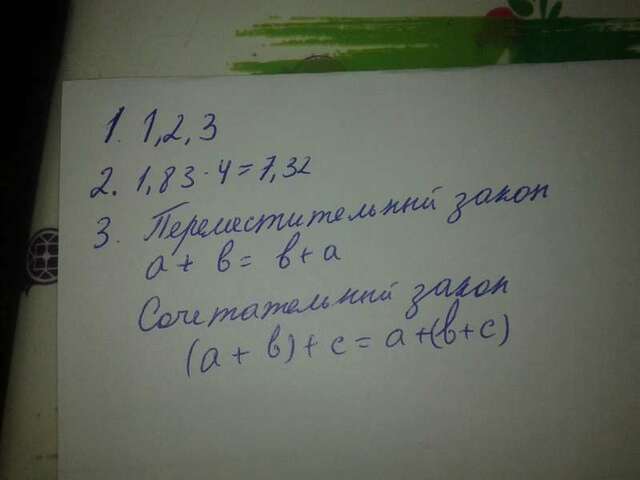 1. 1, 2, 3
2. 1,83·4=7,32
3. Переместительный закон
a+b=b+a
Сочетательный закон
(a+b)+c=a+(b+c)